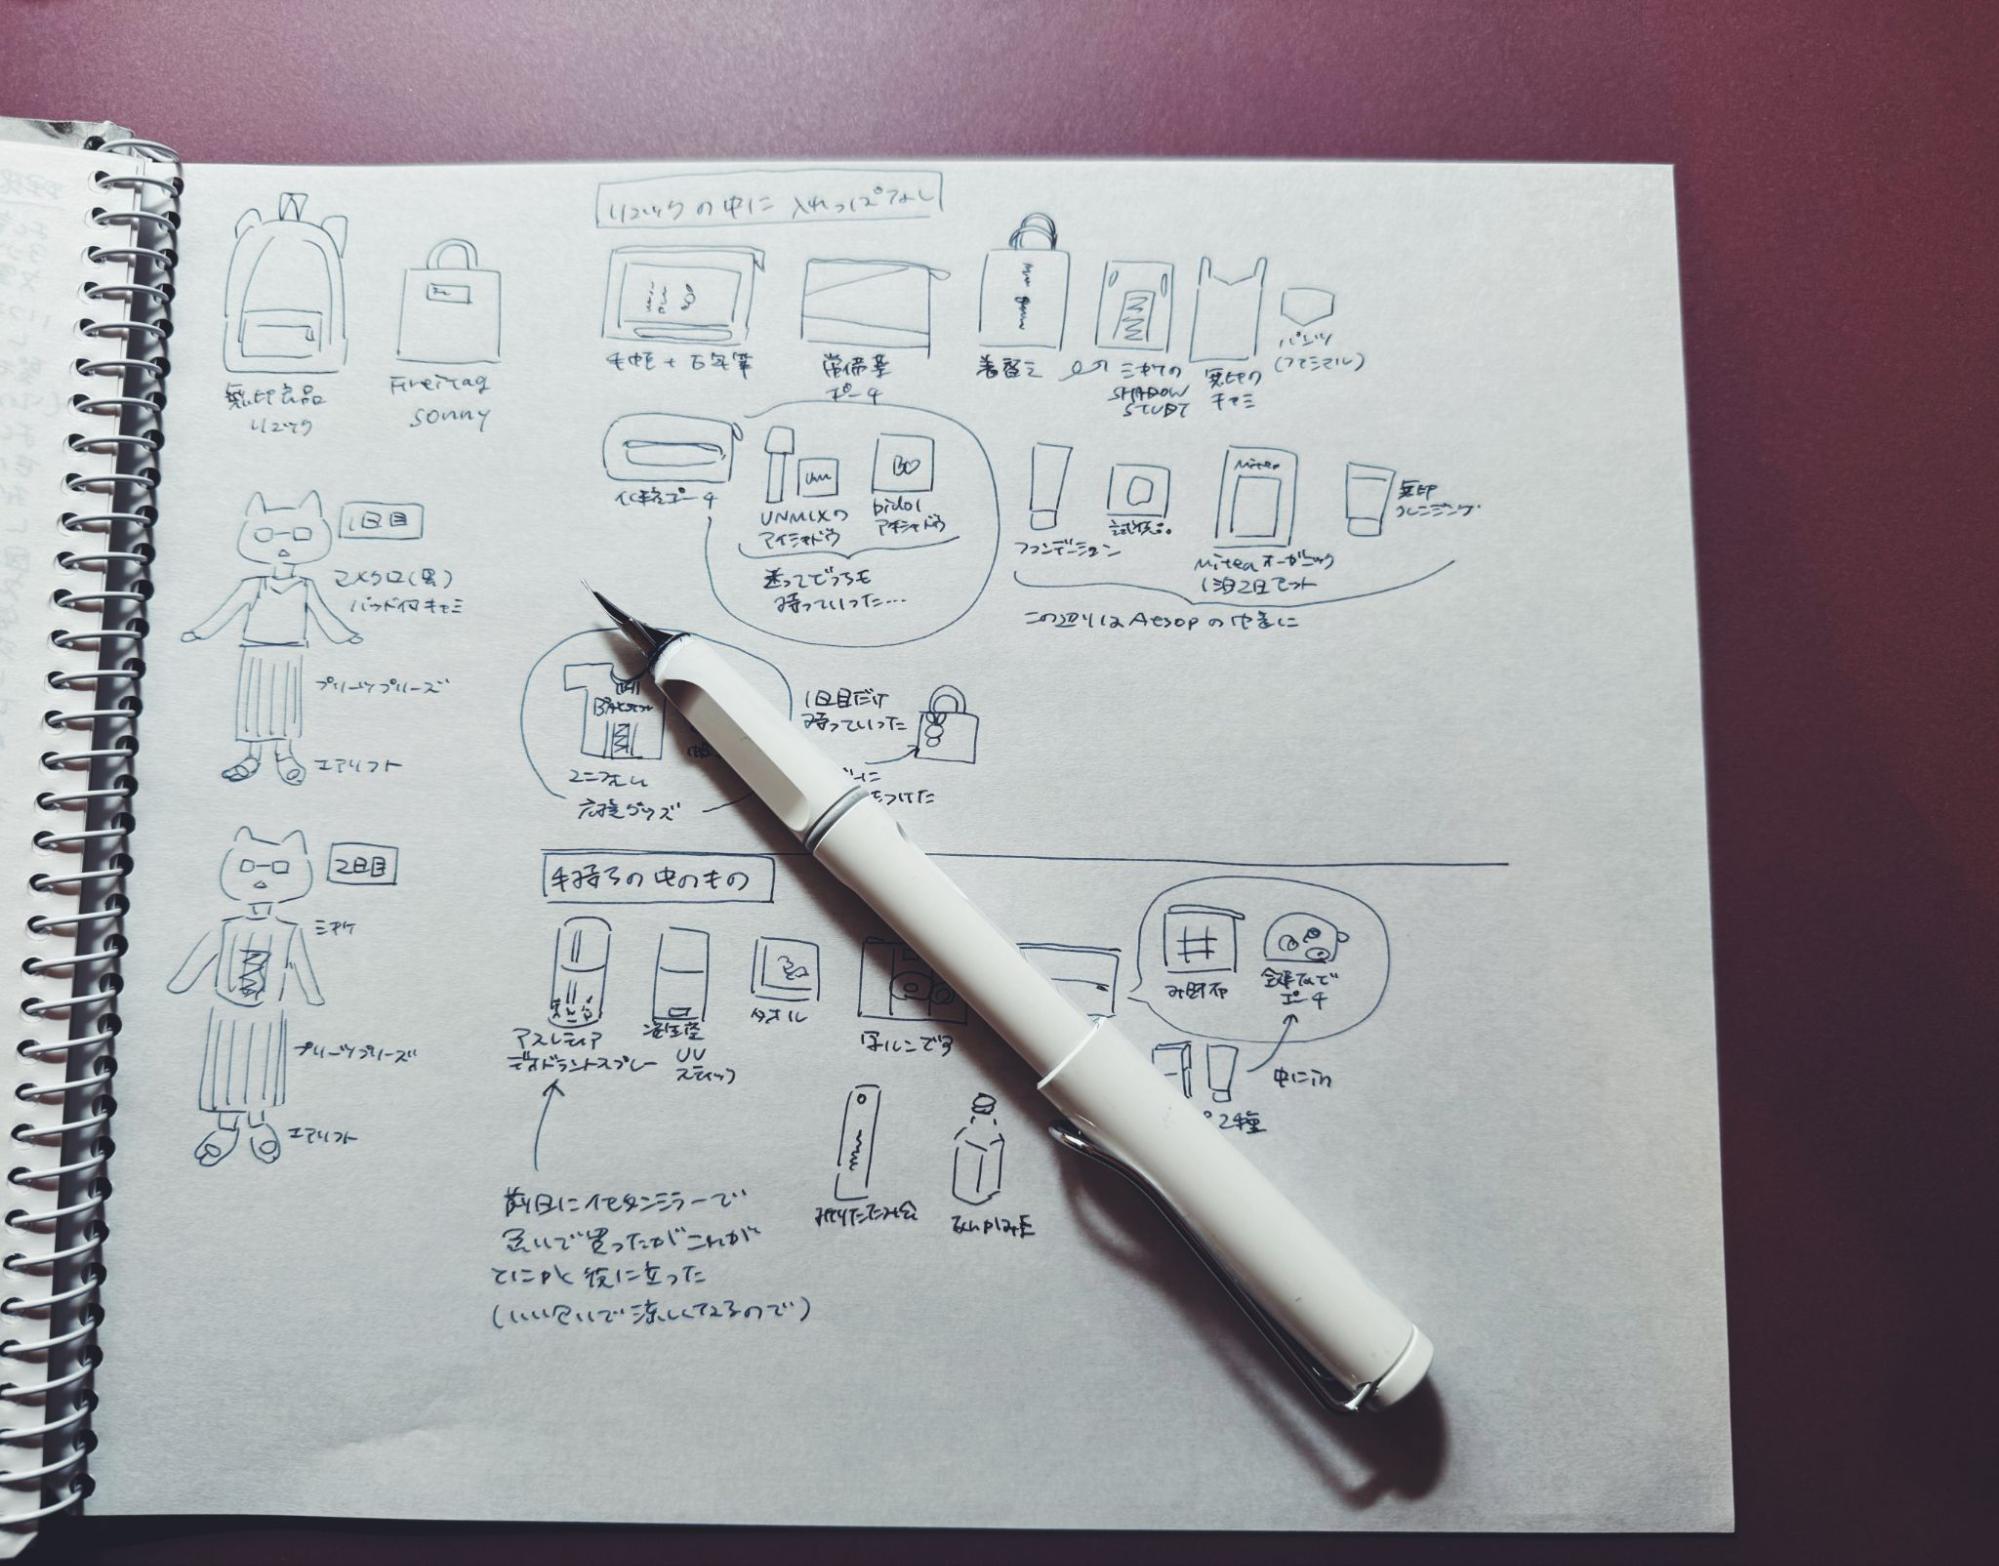 無印良品
リュック
Freitag
sonny
1日目
アメクロ(黒)
パッド付キャミ
プリーツプリーズ
エアリフト
2日目
ミヤケ
プリーツプリーズ
エアリフト
リュックの中に入れっぱなし
手帳+万年筆
常備薬
ポーチ
着替え
ミヤケの
SHADOW
無印の
キャミ
パンツ
(ファミマル)
化粧ポーチ
UNMIXの
アイシャドウ
BO
bidol
アイシャドウ
迷ってどっちも
持っていった…
ファンデーション
試供品
Mitea
Miteaオーガニック
1泊2日セット
無印
クレンジング
この辺りはAesopの巾着に
ユニフォーム
応援グッズ
1日目だけ
持っていった
に
をつけた
手持ちの中のもの
アスレティア
デオドラントスプレー
資生堂
UV
スティック
タオル
お財布
ポーチ
中にin
2種
折りたたみ傘
前日にイセタンミラーで
急いで買ったがこれが
とにかく役に立った
(いい匂いで涼しくなるので)